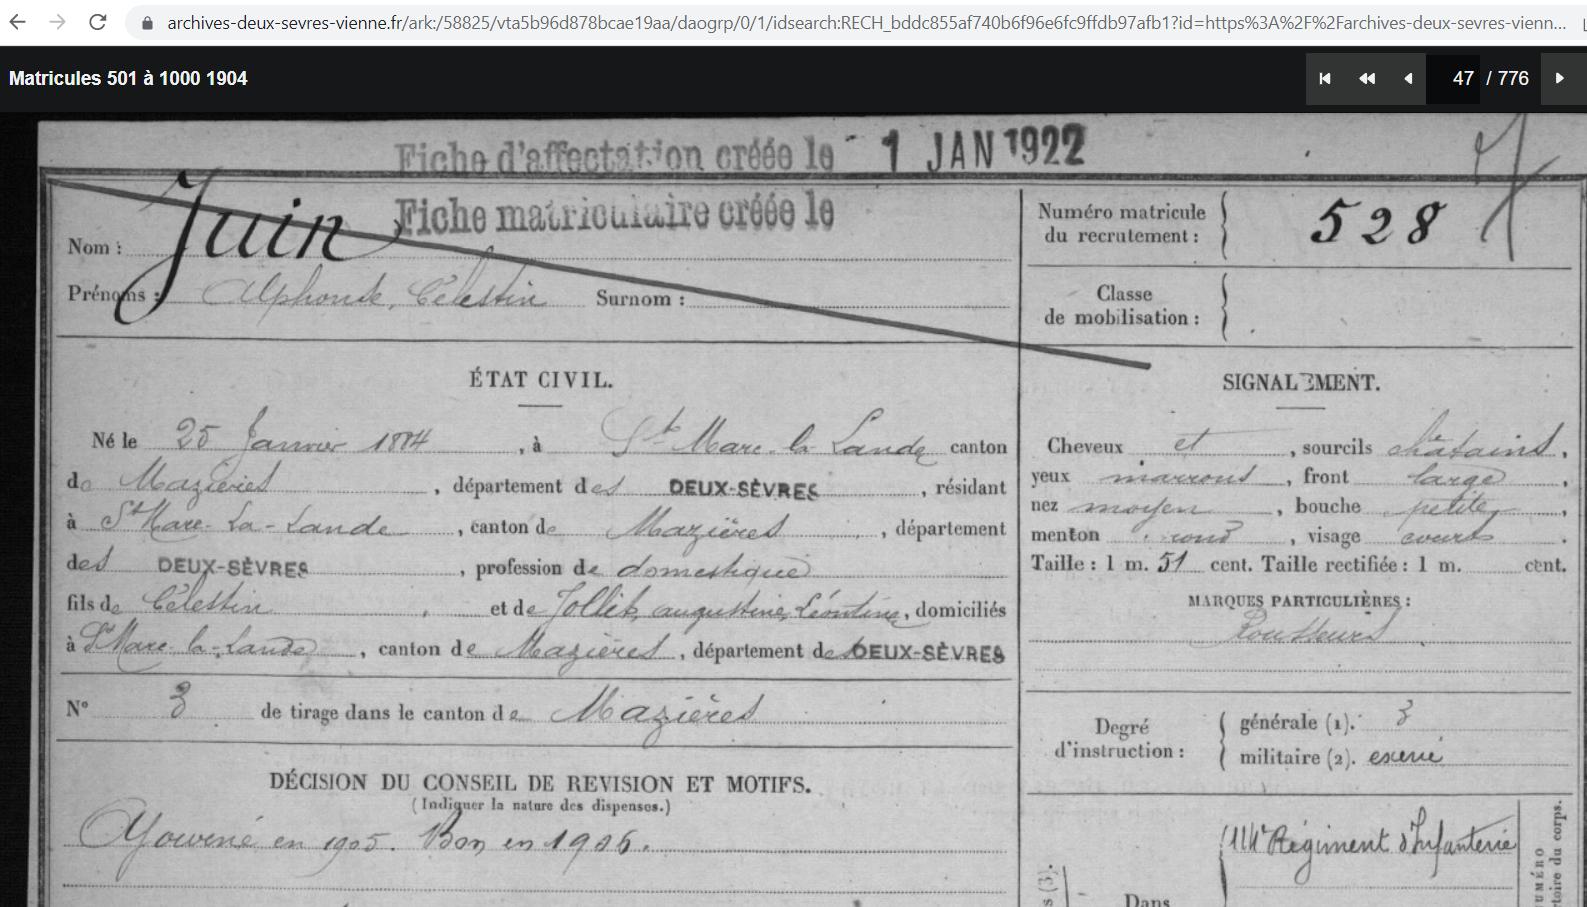 archives-deux-sevres-vienne.fr/ark:/58825/vta5b96d878bcae19aa/daogrp/0/1/idsearch:RECH_bddc855af740b6f96e6fc9ffdb97afb1?id=https%3A%2F%2Farchives-deux-sevres-vienn...
Matricules 501 à 1000 1904
47 / 776
Fiche d'affectation créée le 1 JAN 1922
Fiche matriculaire créée le
Nom : Juin
Prénoms : Alphonse, Célestin Surnom :
Numéro matricule
du recrutement : 528
Classe
de mobilisation :
ÉTAT CIVIL.
Né le 25 Janvier 1884, à St Marc-la-Lande canton
de Mazières, département des DEUX-SÈVRES, résidant
à St Marc-La-Lande, canton de Mazières, département
des DEUX-SÈVRES, profession de domestique
fils de Célestin et de Jollit, augustine, Léontine, domiciliés
à St Marc-la-Lande, canton de Mazières, département des DEUX-SÈVRES
N° 3 de tirage dans le canton de Mazières
DÉCISION DU CONSEIL DE REVISION ET MOTIFS.
(Indiquer la nature des dispenses.)
Ajourné en 1905. Bon en 1906.
SIGNALEMENT.
Cheveux et, sourcils châtains,
yeux marrons, front large,
nez moyen, bouche petite,
menton rond, visage court.
Taille : 1 m. 51 cent. Taille rectifiée : 1 m. cent.
MARQUES PARTICULIÈRES :
Rousseurs
Degré
d'instruction :
générale (1). 3
militaire (2). exercé
114e Régiment d'Infanterie
Dans
(3).
NUMÉRO
du corps.